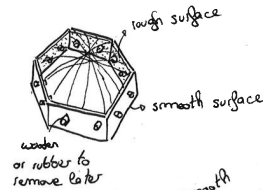 rough surface
smooth surface
wooden
or rubber to
remove later